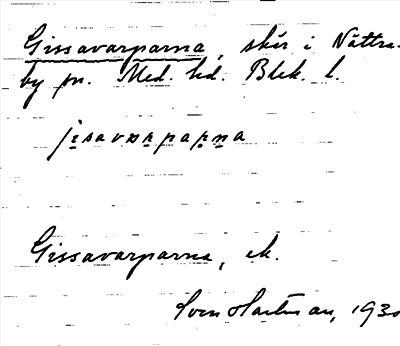 Gissavarparna, skär i Nättra-
by sn. Med. hd. Blek. l.
jisavarpaṛṇa
Gissavarparna, ek.
Sven Hartman, 193